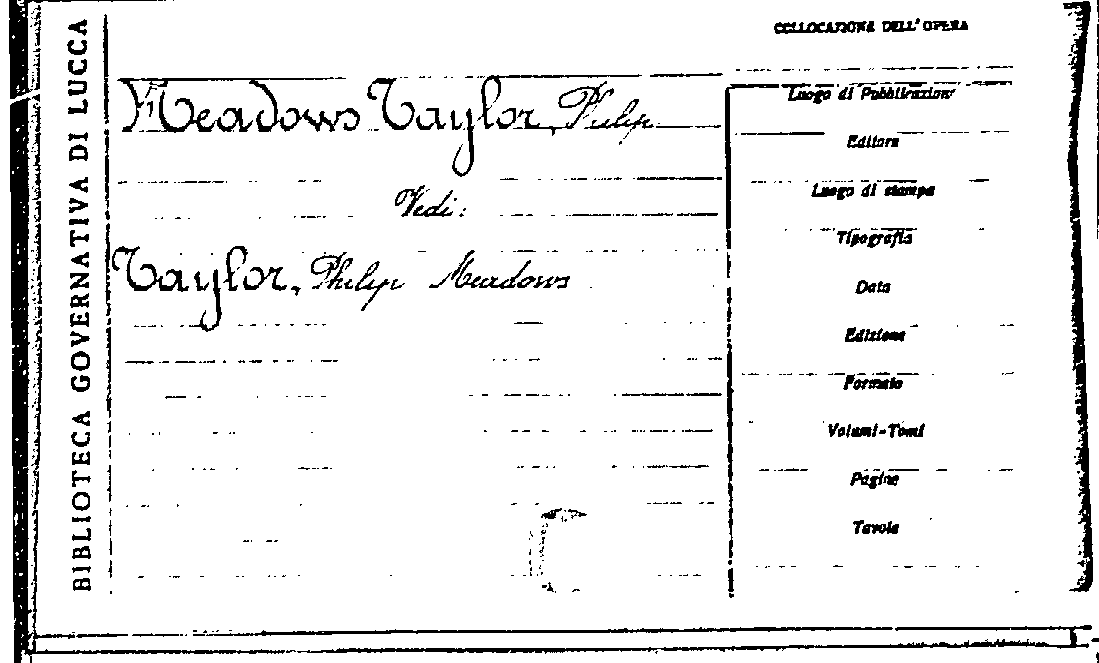 BIBLIOTECA GOVERNATIVA DI LUCCA
COLLOCAZIONE DELL'OPERA
Meadows Taylor, Philip
Vedi:
Taylor, Philip Meadows
Luogo di Pubblicazione
Editore
Luogo di stampa
Tipografia
Data
Edizione
Formato
Volumi-Tomi
Pagine
Tavole